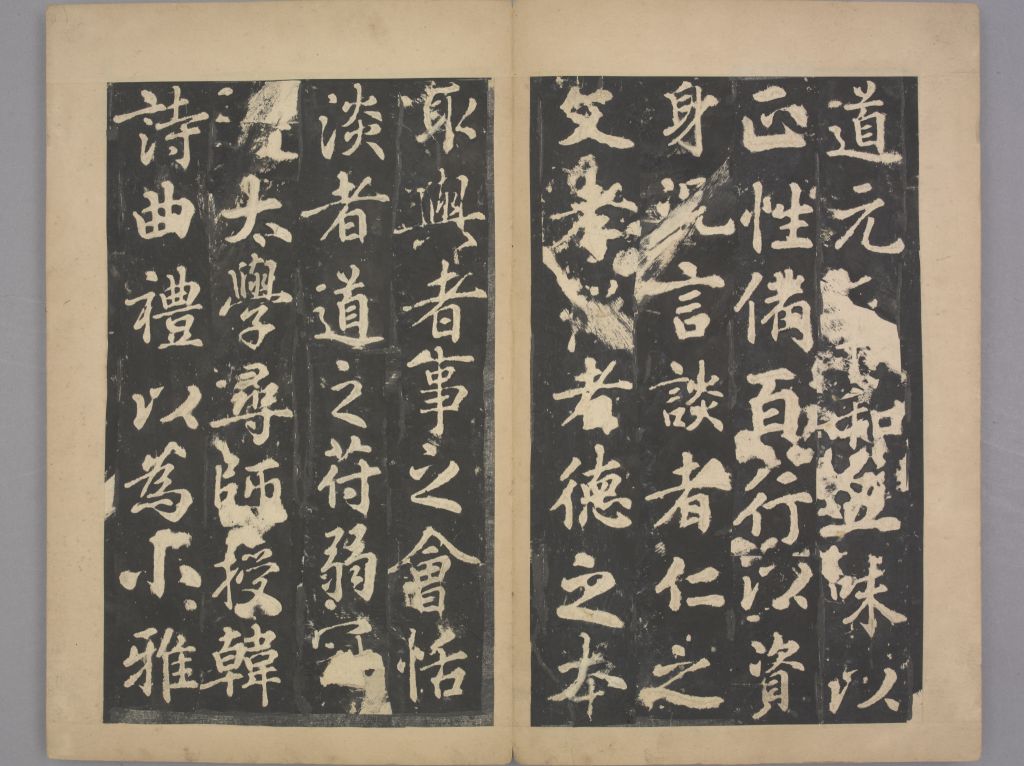 道元和無味以
正性備百行以資
身況言談者仁之
文孝者德之本
取與者事之會恬
淡者道之苻弱冠
大學尋師授韓
詩曲禮以為小雅